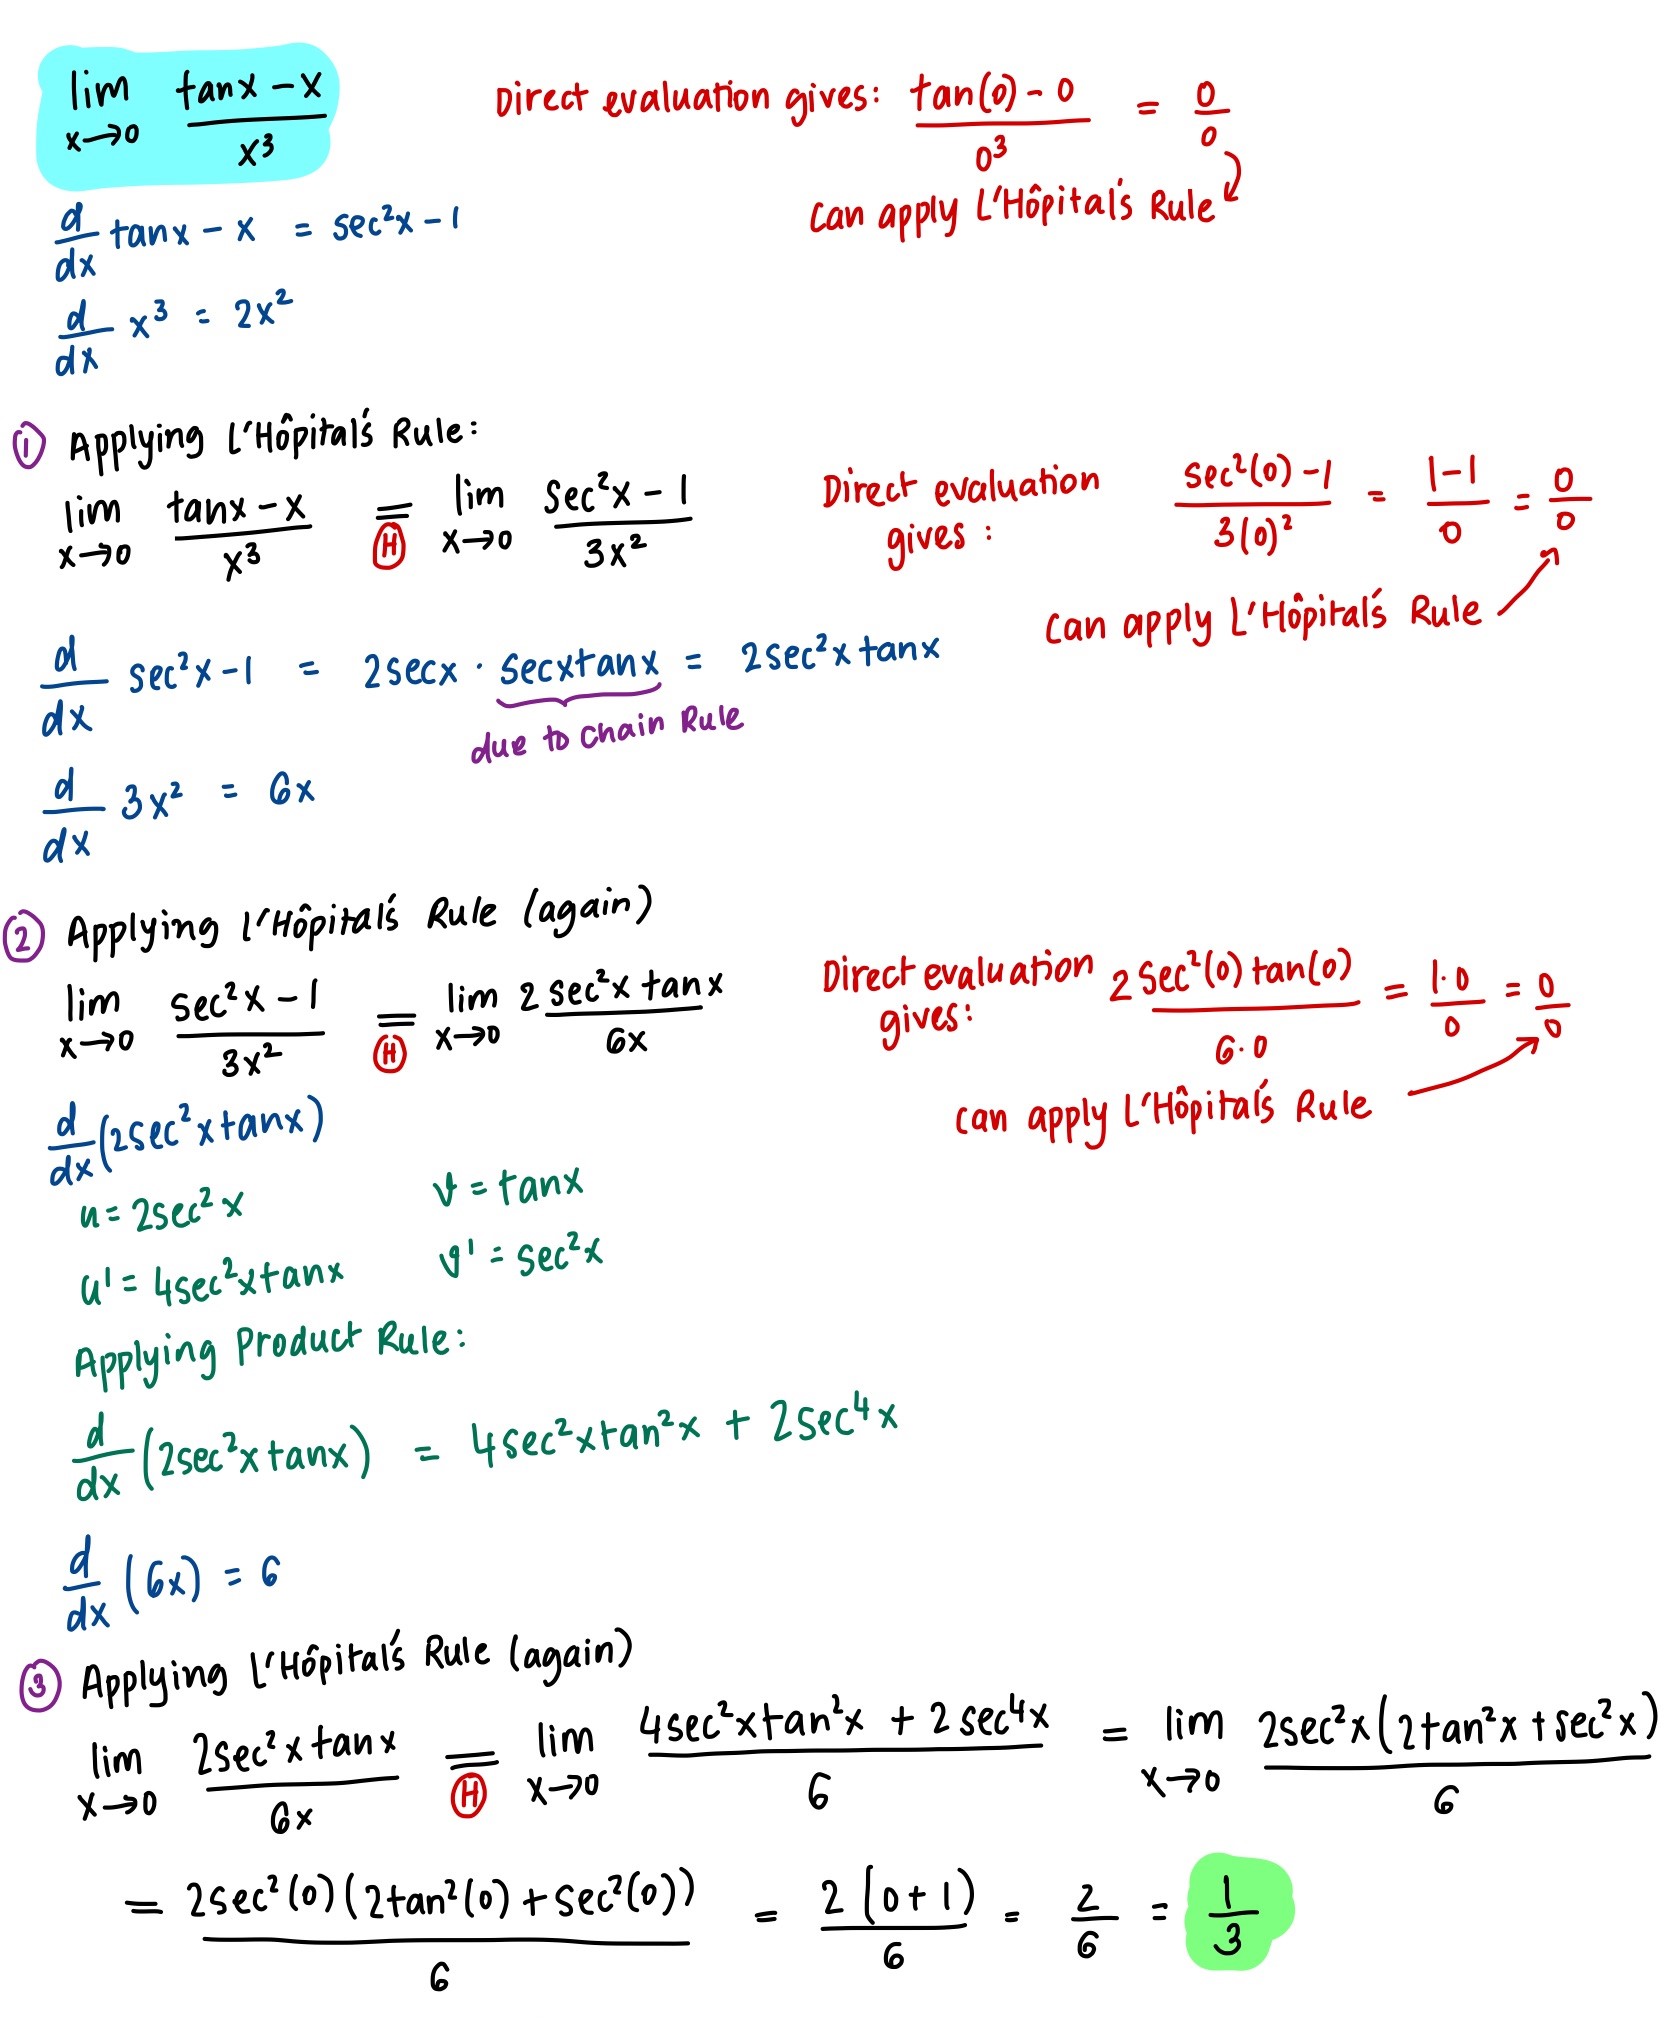 lim x→0 (tanx − x)/x³
Direct evaluation gives: (tan(0) − 0)/0³ = 0/0
Can apply L'Hôpital's Rule
d/dx tanx − x = sec²x − 1
d/dx x³ = 2x²
① Applying L'Hôpital's Rule:
lim x→0 (tanx − x)/x³ = Ⓗ lim x→0 (sec²x − 1)/3x²
Direct evaluation gives: (sec²(0) − 1)/3(0)² = (1−1)/0 = 0/0
can apply L'Hôpital's Rule
d/dx sec²x − 1 = 2secx · secxtanx = 2sec²x tanx
due to chain Rule
d/dx 3x² = 6x
② Applying L'Hôpital's Rule (again)
lim x→0 (sec²x − 1)/3x² = Ⓗ lim x→0 2 sec²x tanx/6x
Direct evaluation gives: 2 sec²(0) tan(0)/6·0 = 1·0/0 = 0/0
can apply L'Hôpital's Rule
d/dx (2sec²x tanx)
u = 2sec²x v = tanx
u' = 4sec²x tanx v' = sec²x
Applying Product Rule:
d/dx (2sec²x tanx) = 4sec²xtan²x + 2sec⁴x
d/dx (6x) = 6
③ Applying L'Hôpital's Rule (again)
lim x→0 2sec²x tanx/6x = Ⓗ lim x→0 (4sec²xtan²x + 2sec⁴x)/6 = lim x→0 2sec²x(2tan²x + sec²x)/6
= 2sec²(0)(2tan²(0) + sec²(0))/6 = 2(0+1)/6 = 2/6 = 1/3